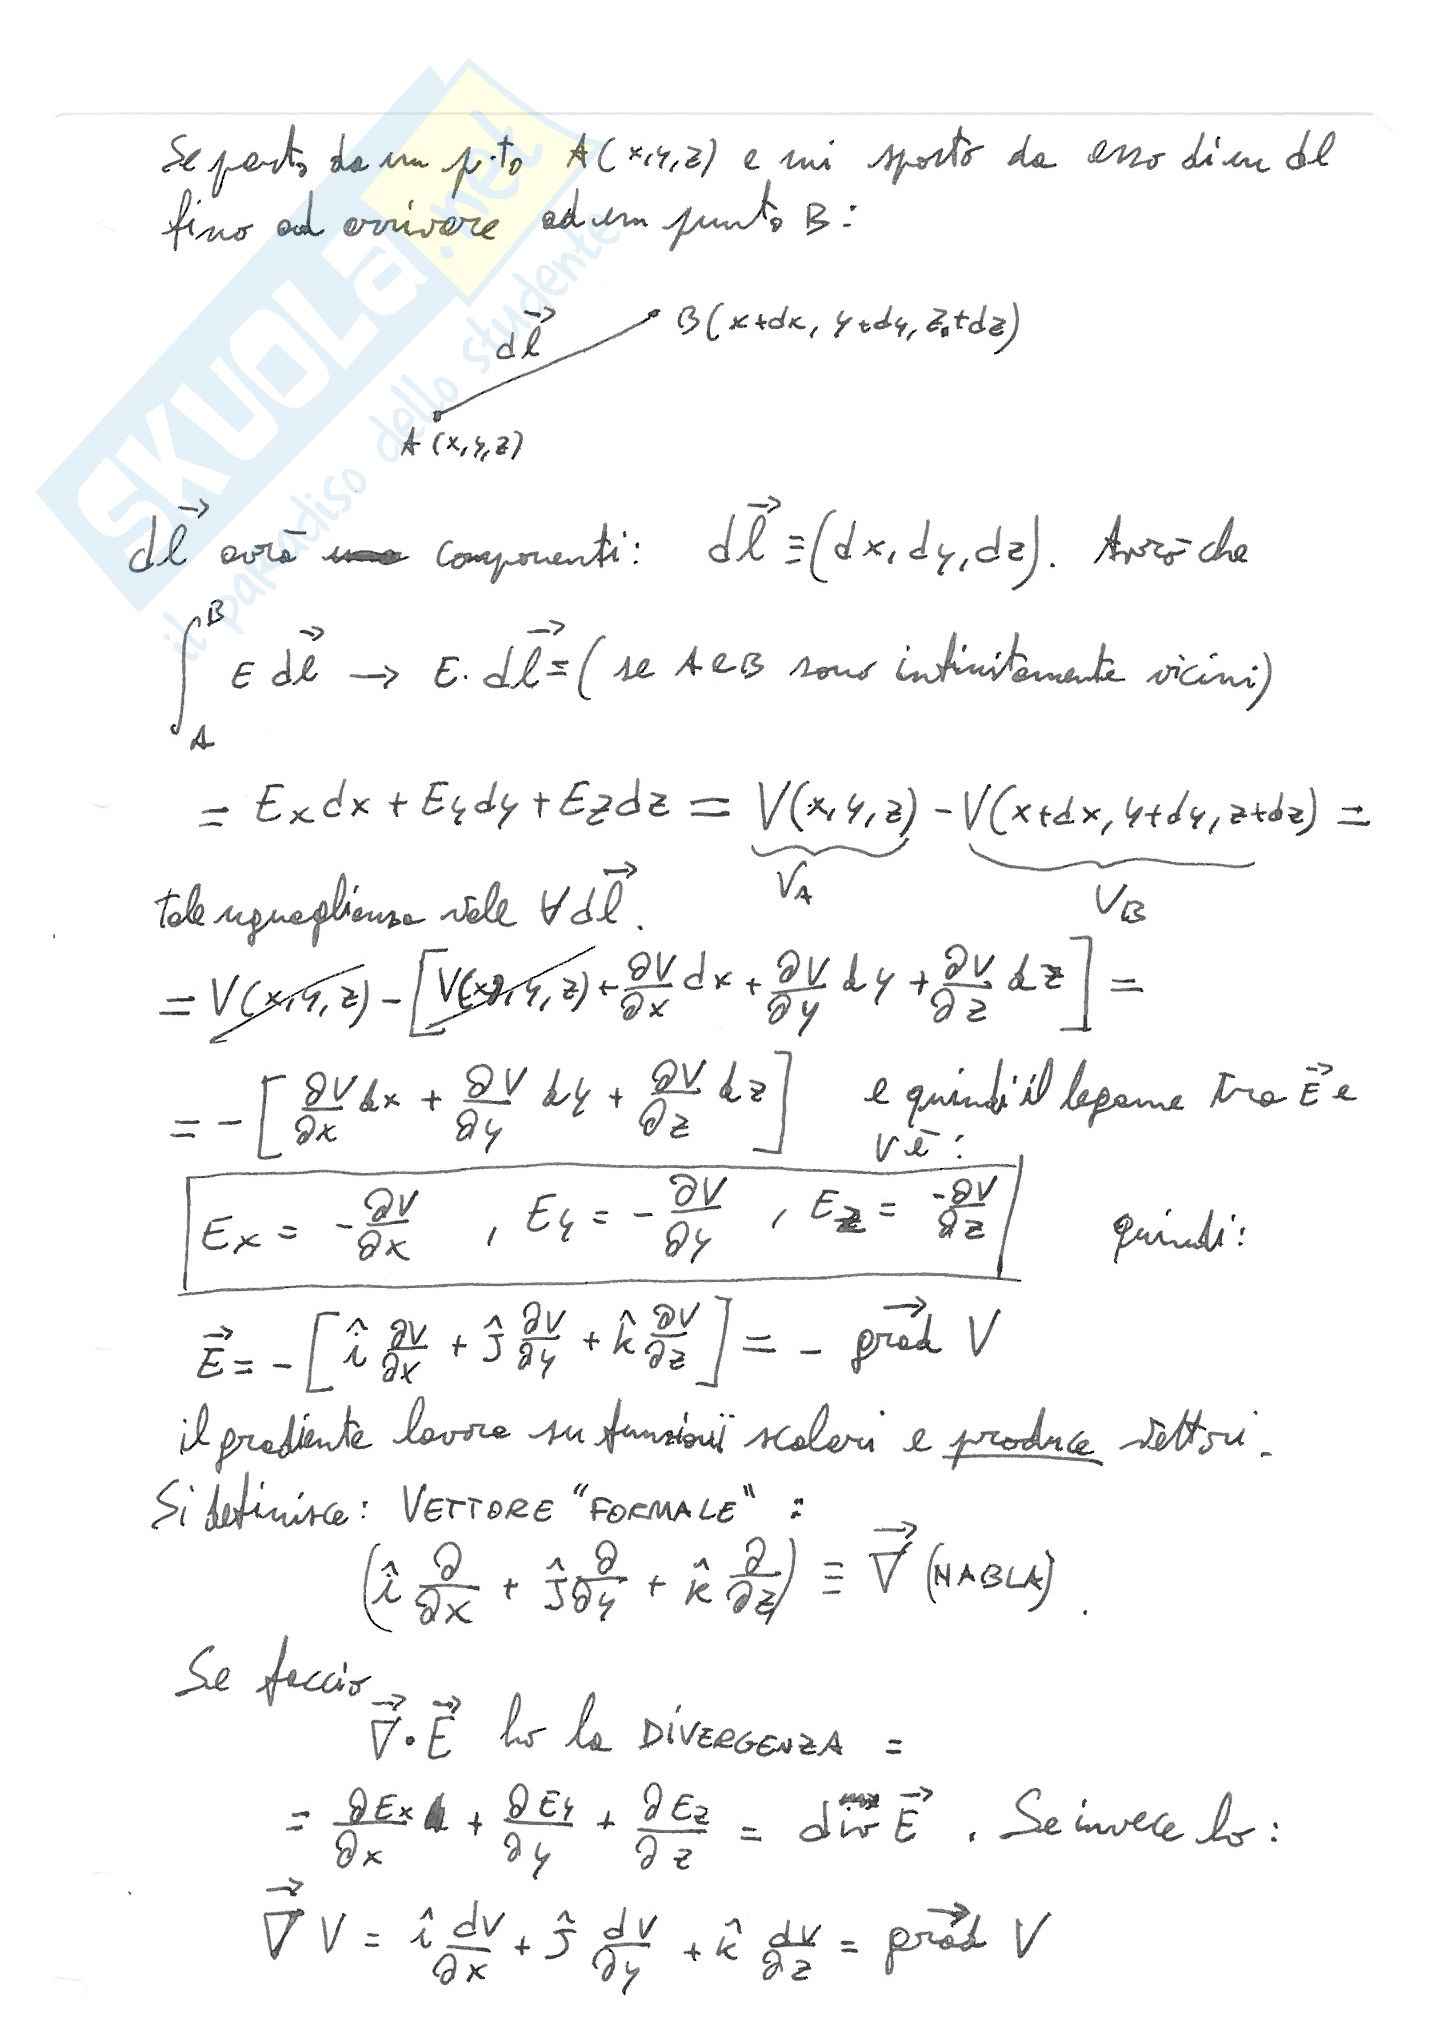 Se parto da un p.to A(x,y,z) e mi sposto da esso di un dl
fino ad arrivare ad un punto B:
d\vec{l}
B(x+dx, y+dy, z+dz)
A(x,y,z)
d\vec{l} avrà componenti: d\vec{l} ≡ (dx, dy, dz). Avrò che
∫_A^B E d\vec{l} → E · d\vec{l} = (se A e B sono infinitamente vicini)
= E_x dx + E_y dy + E_z dz = V(x,y,z) - V(x+dx, y+dy, z+dz) =
V_A V_B
tale uguaglianza vale ∀ d\vec{l}.
= V(x,y,z) - [V(x,y,z) + ∂V/∂x dx + ∂V/∂y dy + ∂V/∂z dz] =
= - [∂V/∂x dx + ∂V/∂y dy + ∂V/∂z dz] e quindi il legame tra \vec{E} e
V è:
E_x = -∂V/∂x , E_y = -∂V/∂y , E_z = -∂V/∂z quindi:
\vec{E} = - [î ∂V/∂x + ĵ ∂V/∂y + k̂ ∂V/∂z] = - \vec{grad} V
il gradiente lavora su funzioni scalari e produce vettori.
Si definisce: VETTORE "FORMALE" :
(î ∂/∂x + ĵ ∂/∂y + k̂ ∂/∂z) ≡ \vec{∇} (NABLA).
Se faccio
\vec{∇} · \vec{E} ho la DIVERGENZA =
= ∂E_x/∂x + ∂E_y/∂y + ∂E_z/∂z = div \vec{E} . Se invece ho:
\vec{∇} V = î dV/∂x + ĵ dV/∂y + k̂ dV/∂z = \vec{grad} V
SKUOLA.net
il paradiso dello studente